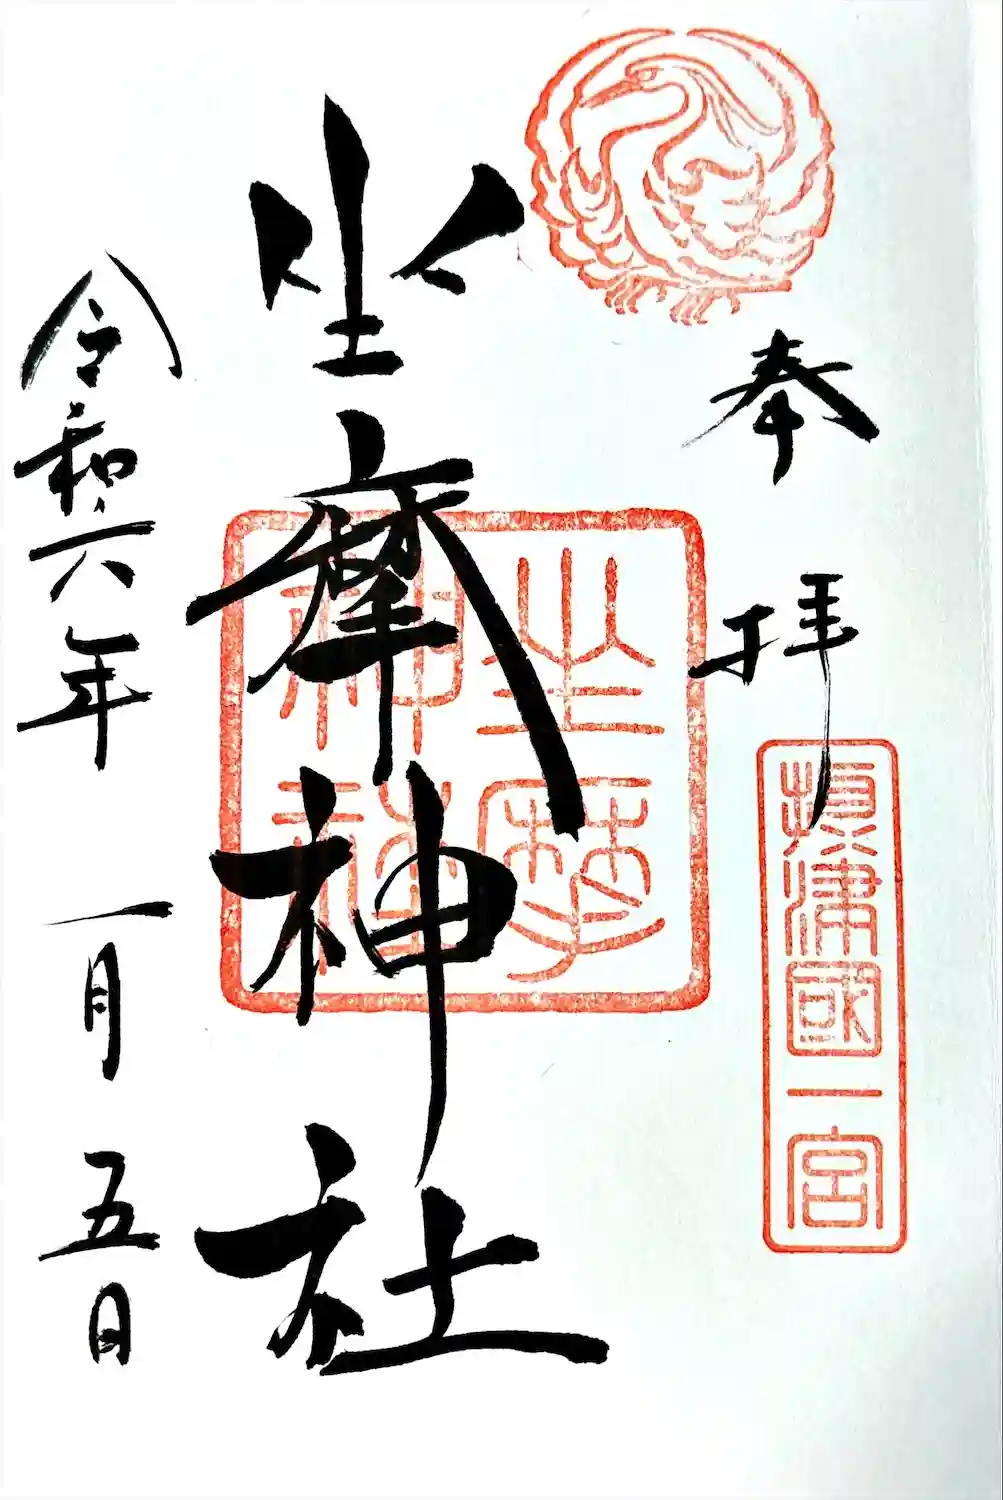 奉拝
摂津國一宮
坐摩神社
坐摩神社
令和六年一月五日